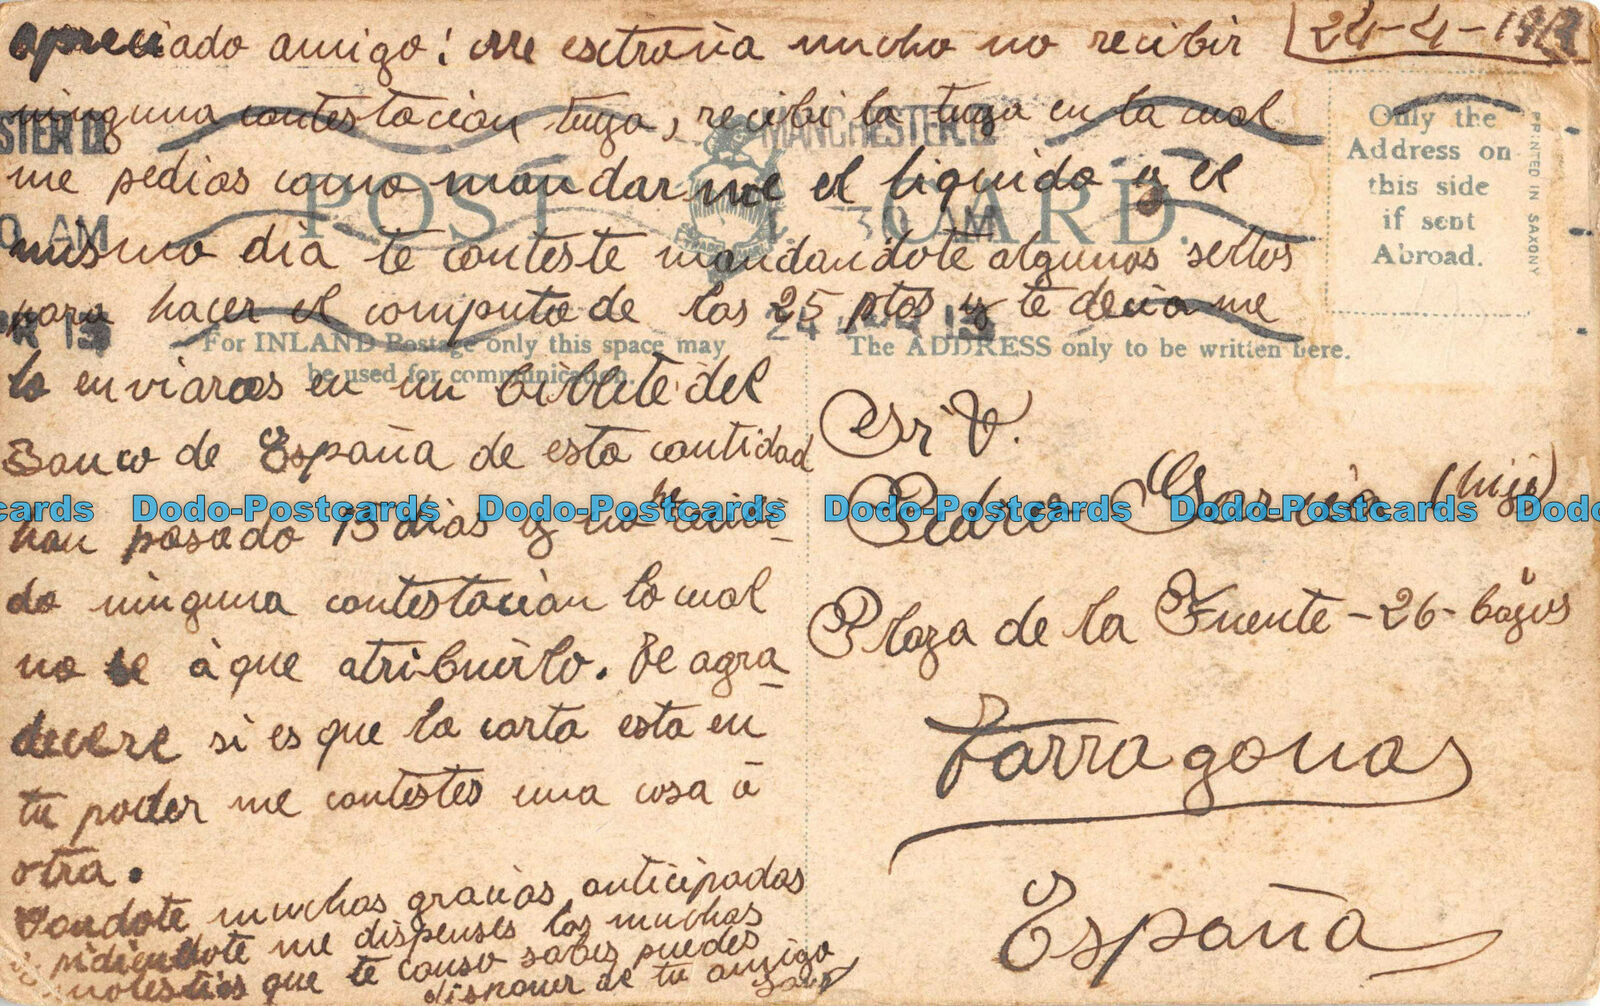 24-4-191
apreciado amigo: Me estraña mucho no recibir
ninguna contestacion tuya, recibi la tuya en la cual
me pedias como mandarme el liquido y el
mismo dia te conteste mandandote algunos sellos
para hacer el computo de las 25 ptas y te decia me
lo enviaras en un billete del
Banco de España de esta cantidad
han pasado 15 dias y no he recibi-
do ninguna contestacion lo cual
no se á que atribuirlo. Te agra-
decere si es que la carta esta en
tu poder me contestes una cosa ó
otra.
Dandote muchas gracias anticipadas
y pidiendote me dispenses las muchas
molestias que te causo sabes puedes
disponer de tu amigo
Sr. D.
Pedro Garcia (hijo)
Plaza de la Fuente-26-bajos
Tarragona
España
POST CARD.
Only the
Address on
this side
if sent
Abroad.
PRINTED IN SAXONY
For INLAND Postage only this space may
be used for communication.
The ADDRESS only to be written here.
TRADE MARK
STER D
MANCHESTER D
0 AM
30 AM
R 13
24 13
cards Dodo-Postcards Dodo-Postcards Dodo-Postcards Dodo-Postcards Dodo